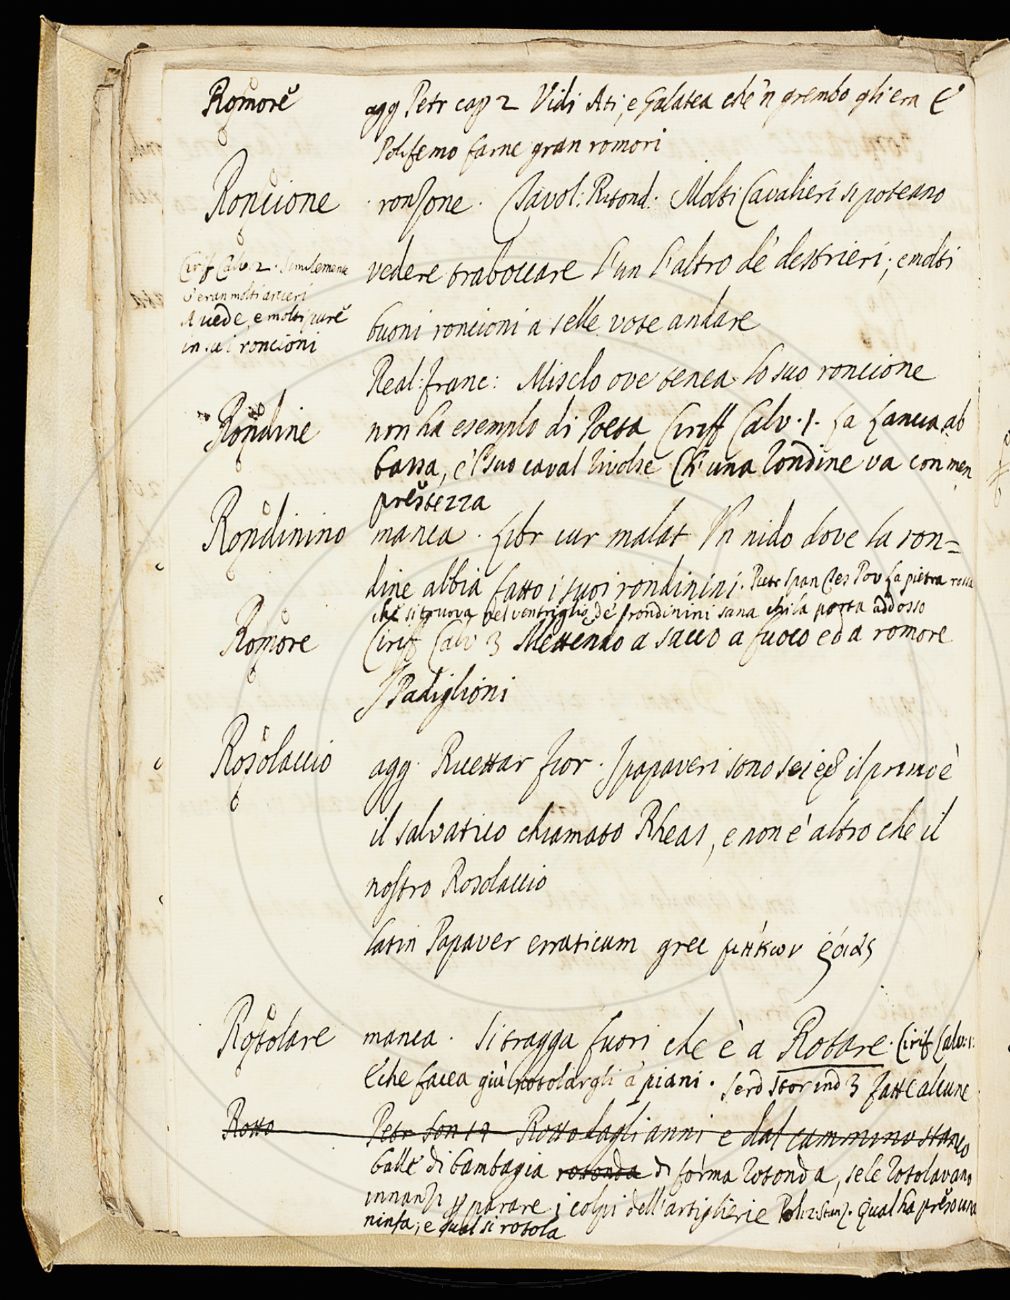 Romore agg Petr cap 2 Vidi Ati, e Galatea che 'n grembo gli era E
Polifemo farne gran romori
Roncione ronzone. Tavol: Ritond. Molti Cavalieri si poteano
vedere traboccare l'un l'altro de' destrieri; e molti
buoni roncioni a selle vote andare
Real: franc: Miselo ove tenea lo suo roncione
Cirif Calv. 2. Similemente
v'eran molti arcieri
A vede, e molti pure
in su i roncioni
Rondine non ha esempio di Poeta Ciriff Calv. 1. La Lancia ab
bassa, e 'l suo caval rivolse Ch'una rondine va con men
prestezza
Rondinino manca. Libr cur malat Un nido dove la ron=
dine abbia fatto i suoi rondinini. Pietr Span Tes Pov La pietra rossa
che si truova nel ventriglio de' rondinini sana chi la porta addosso
Romore Cirif Calv 3 Mettendo a sacco a fuoco ed a romore
I Padiglioni
Rosolaccio agg. Ricettar fior. I papaveri sono sei il primo è
il salvatico chiamato Rheas, e non è altro che il
nostro Rosolaccio
latin Papaver erraticum grec μήκων ῥοιὰς
Rotolare manca. Si tragga fuori che è a Rotare. Cirif Calv. 1.
E che facea giù rotolargli a' piani. Serd Stor ind 3 Fatte alcune
Rotto Petr Son 12 Rotto dagli anni e dal cammino stanco
balle di bambagia rotonda di forma rotonda, se le rotolavano
innanzi p parare i colpi dell'artiglierie Pol: 2. Stanz. Qual ha preso una
ninfa, e qual si rotola